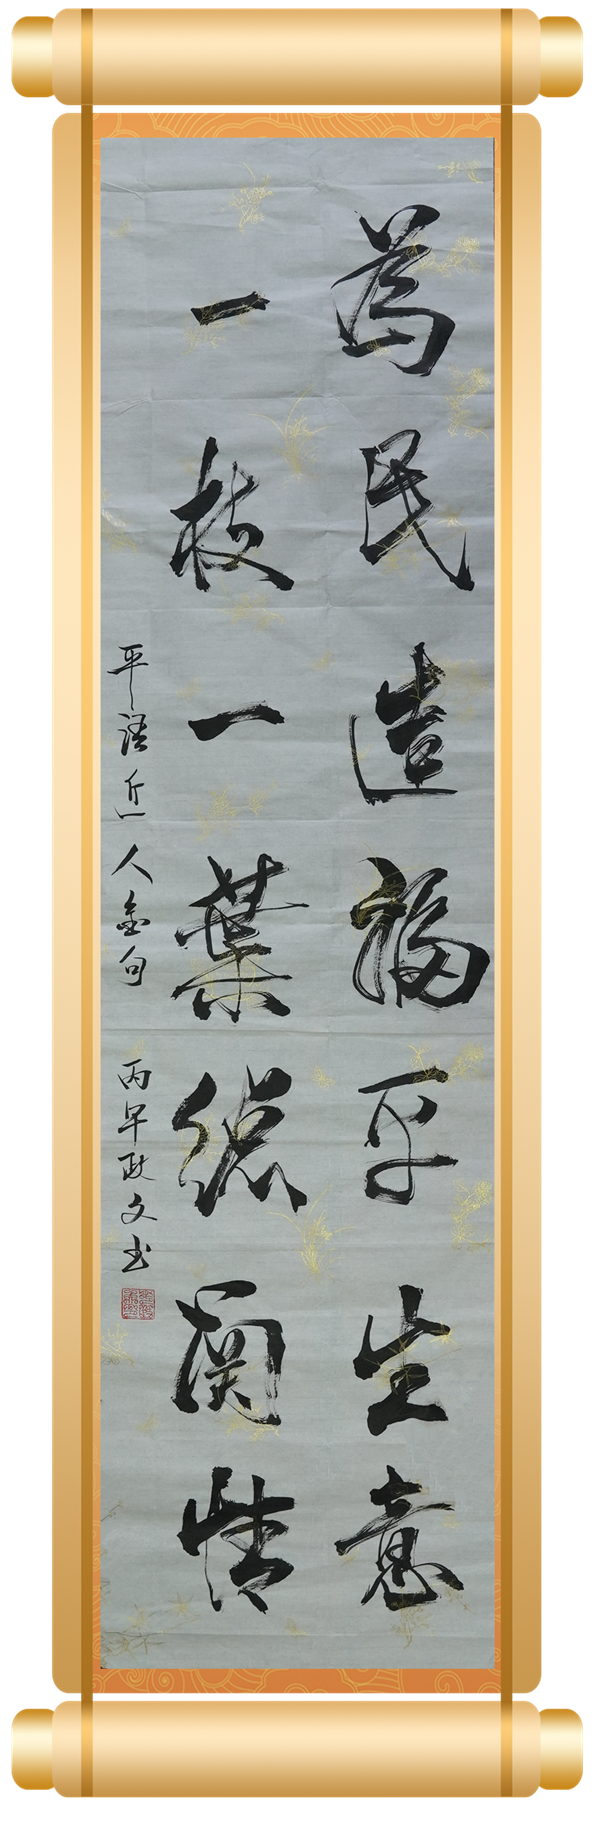 為民造福平生意
一枝一葉總關情
平語近人金句
丙午政文书